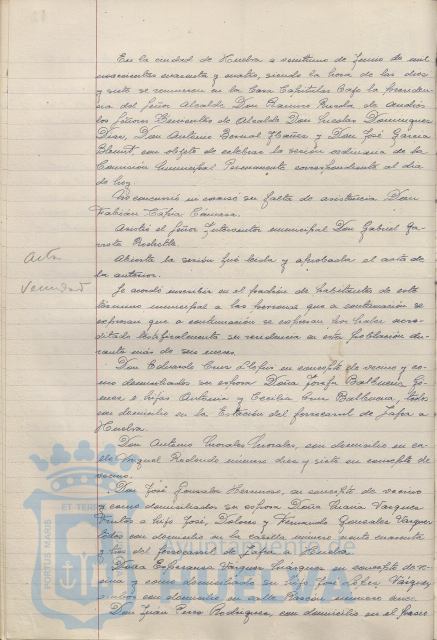 En la ciudad de Huelva a veintiuno de Junio de mil
novecientos cuarenta y cuatro, siendo la hora de las diez
y siete se reunieron en la Casa Capitular bajo la presiden
cia del Señor Alcalde Don Ramiro
los Señores Tenientes de Alcalde Don Nicolas Dominguez
Diaz, Don Antonio Bernal Ibañez y Don José Garcia
con objeto de celebrar la sesion ordinaria de la
Comisión Municipal Permanente correspondiente al dia
de hoy.
No concurrió ni excusó su falta de asistencia Don
Fabian Tapia Cámara.
Asistió el Señor Interventor municipal Don Gabriel Ga
rrote
Acta
Abierta la sesion fué leida y aprobada el acta de
la anterior.
Vecindad
Se acordó inscribir en el padrón de habitantes de este
término municipal a las personas que a continuación se
expresan que a continuación se expresan por haber acre
ditado su residencia en esta poblacion du
rante más de seis meses.
Don Eduardo Cruz en concepto de vecino y co
mo domiciliados su esposa Doña Josefa Balbuena Go
mez e hijos Antonia y Cecilia Cruz Balbuena, todos
con domicilio en la Estación del ferrocarril de Zafra a
Huelva.
Don Antonio Morales Morales, con domicilio en ca
lle Miguel Redondo número diez y siete en concepto de
vecino.
Don José Gonzalez Hermoso, en concepto de vecino
y como domiciliados su esposa Doña Maria Vazquez
e hijos José, Dolores y Fernando Gonzalez Vazquez
todos con domicilio en la casilla número ciento cuarenta
y del ferrocarril de Zafra a Huelva.
Doña Esperanza Vazquez Marquez en concepto de ve
cina y como domiciliado su hijo José Vazquez,
ambos con domicilio en calle Rascón número once.
Don Juan Perez Rodriguez, con domicilio en el
PORTUS MARIS
ET TERRAE
Ayuntamiento de